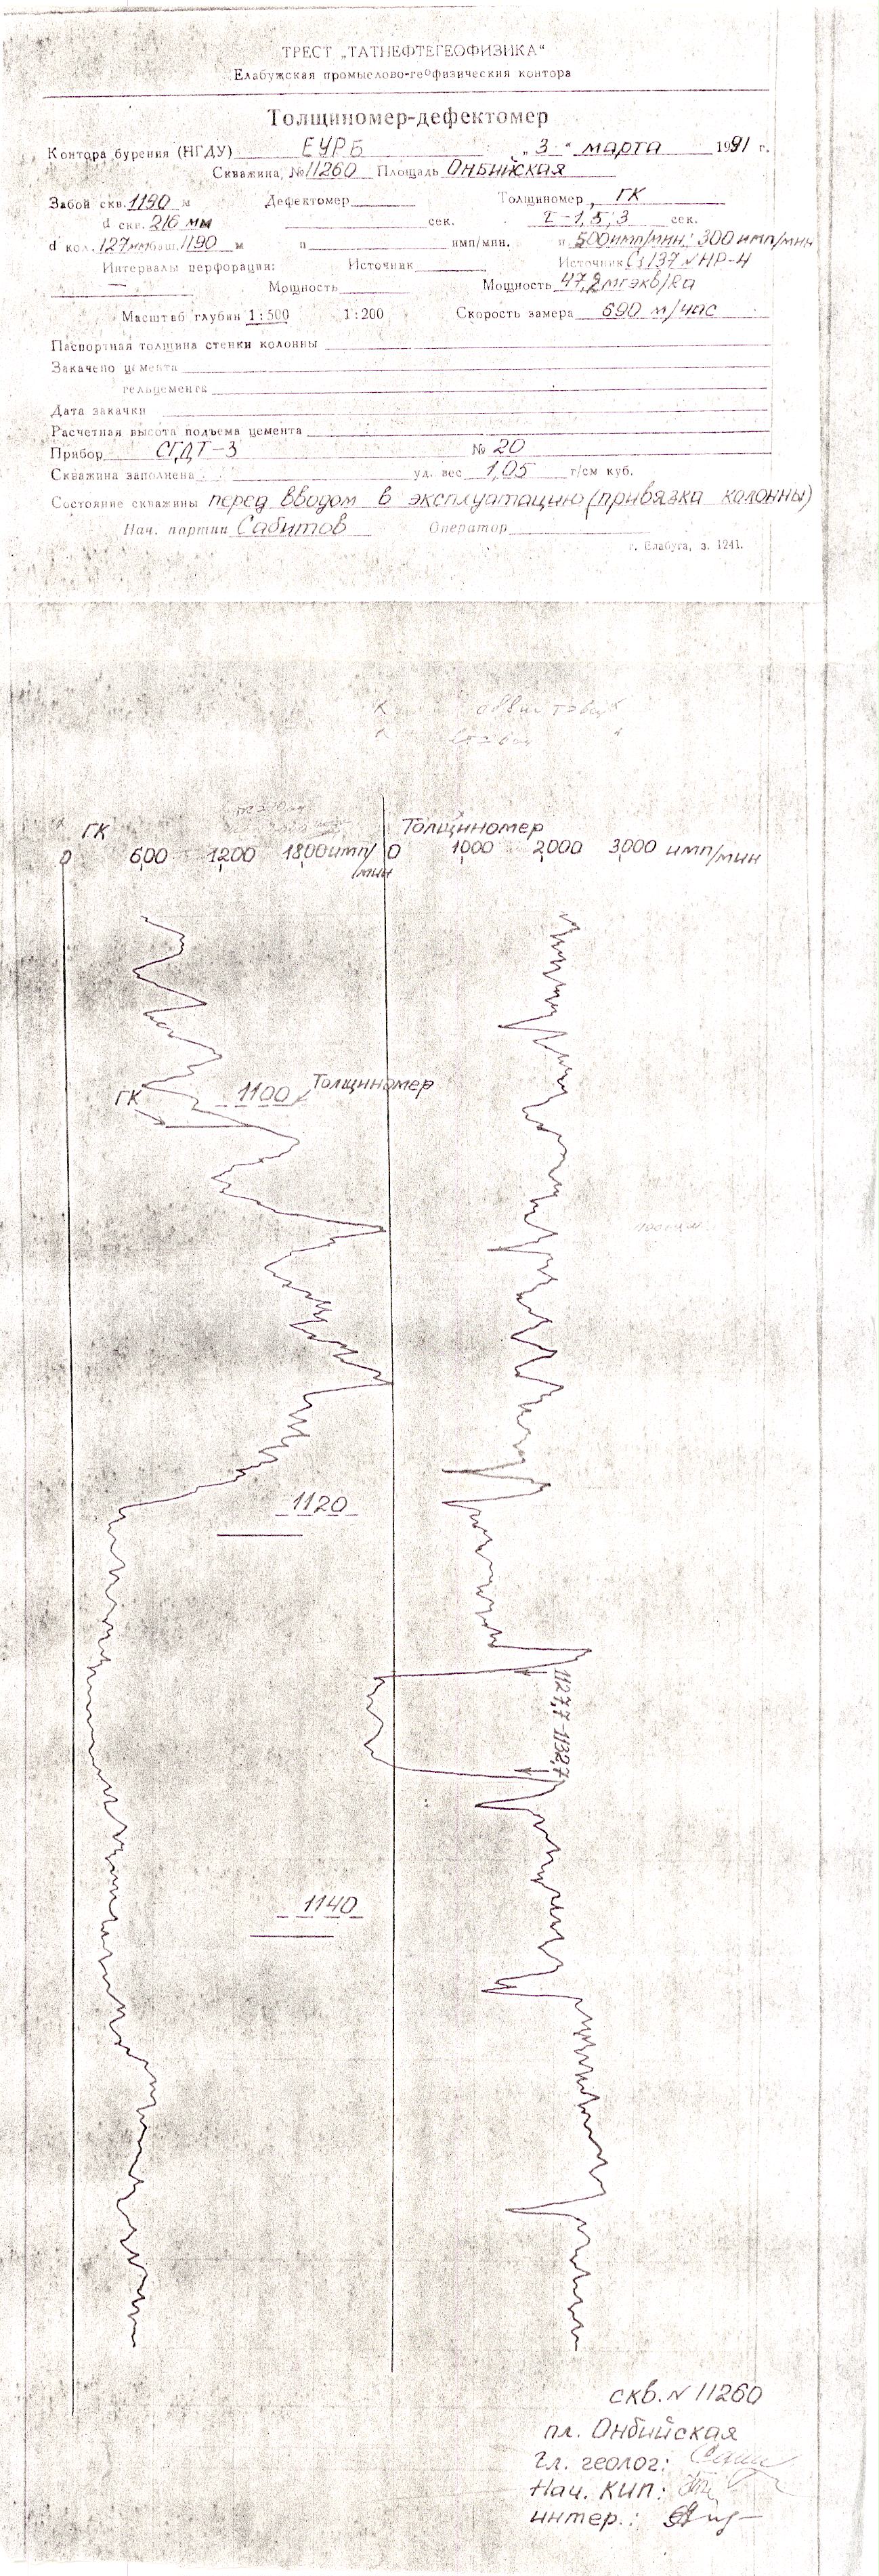 ТРЕСТ „ТАТНЕФТЕГЕОФИЗИКА“
Елабужская промыслово-геофизическия контора
Толщиномер-дефектомер
Контора бурения (НГДУ) ЕУРБ „3“ марта 1991 г.
Скважина, № 11260 Площадь Онбийская
Забой скв. 1190 м Дефектомер Толщиномер, ГК
d скв. 216 мм сек. τ-1,5; 3 сек.
d кол. 127мм баш. 1190 м п имп/мин. п 500имп/мин; 300 имп/мин
Интервалы перфорации: Источник Источник Cs 137 N НР-4
— Мощность Мощность 47,2 мгэкв/Ra
Масштаб глубин 1:500 1:200 Скорость замера 690 м/час
Паспортная толщина стенки колонны
Закачено цемента
гельцемента
Дата закачки
Расчетная высота подъема цемента
Прибор СГДТ-3 № 20
Скважина заполнена уд. вес 1,05 г/см куб.
Состояние скважины перед вводом в эксплуатацию (привязка колонны)
Нач. партии Сабитов Оператор
г. Елабуга, з. 1241.
ГК Толщиномер
0 600 1200 1800 имп/мин 0 1000 2000 3000 имп/мин
ГК 1100 Толщиномер
1120
1127,7-1132,7
1140
скв. N 11260
пл. Онбийская
Гл. геолог:
Нач. КИП:
интер.: